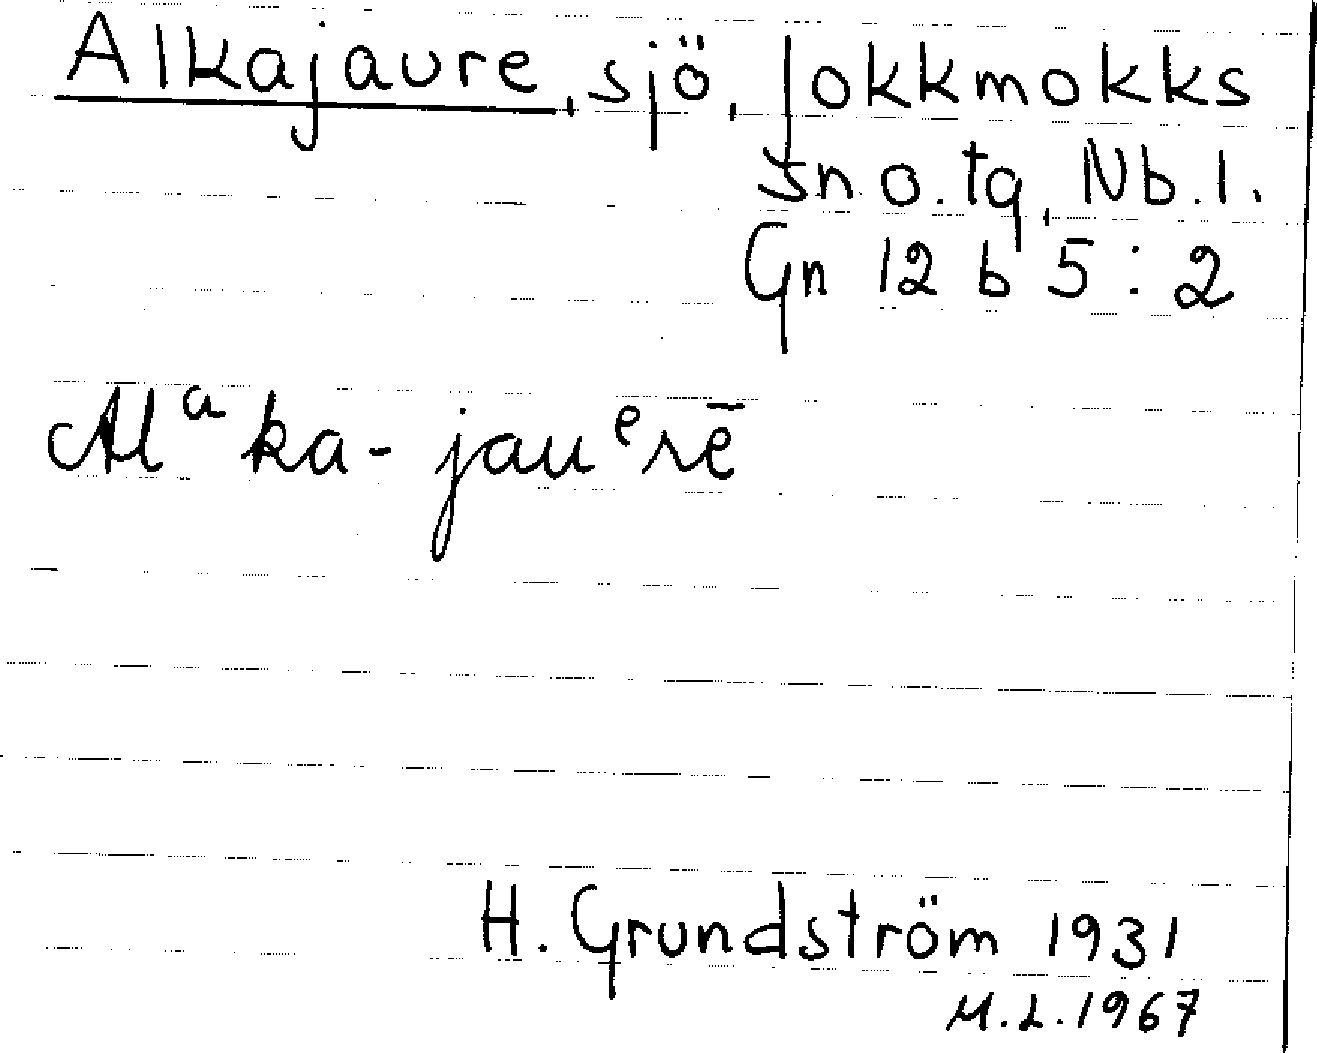 Alkajaure, sjö, Jokkmokks
sn o. tg, Nb. l.
Gn 12 b 5 : 2
Alᵃka-jauᵉrē
H. Grundström 1931
M.L. 1967